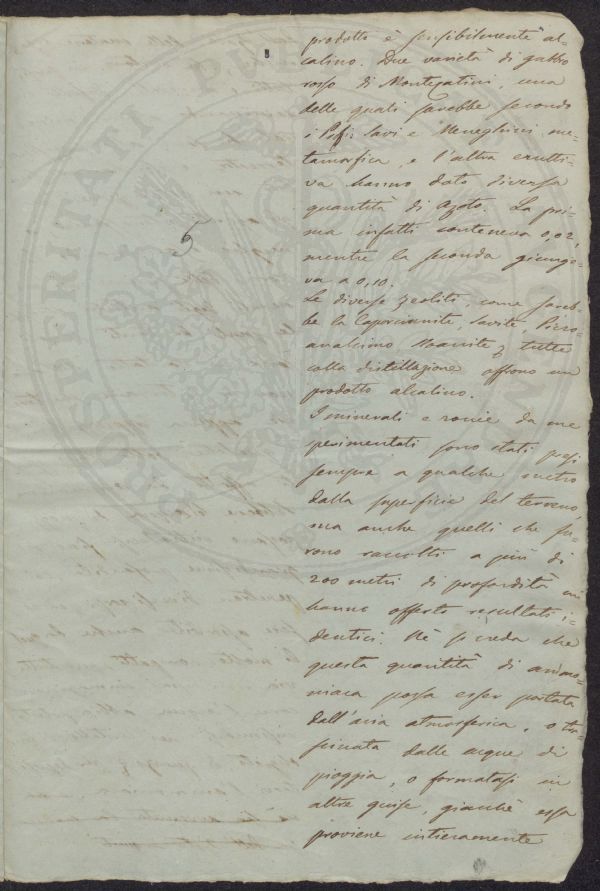 8
prodotto è sensibilmente al-
calino. Due varietà di gabbro
rosso di Montecatini, una
delle quali sarebbe secondo
i Pfri: Savi e Meneghini me-
tamorfica, e l'altra erutti-
va hanno dato diversa
quantità di azoto. La pri-
ma infatti conteneva 0,02,
mentre la seconda giunge-
va a 0,10.
Le diverse zeoliti, come sareb-
be la Caporcianite, Savite, Picro-
analcimo tutte
colla distillazione offrono un
prodotto alcalino.
I minerali e roccie da me
sperimentati sono stati presi
sempre a qualche metro
dalla superficie del terreno,
ma anche quelli che fu-
rono raccolti a più di
200 metri di profondità mi
hanno offerto resultati i-
dentici. Nè si creda che
questa quantità di ammo-
niaca possa esser portata
dall'aria atmosferica, o tra-
scinata dalle acque di
pioggia, o formatasi in
altre guise, giacchè essa
proviene intieramente
5
PROSPERITATI PUBLICAE